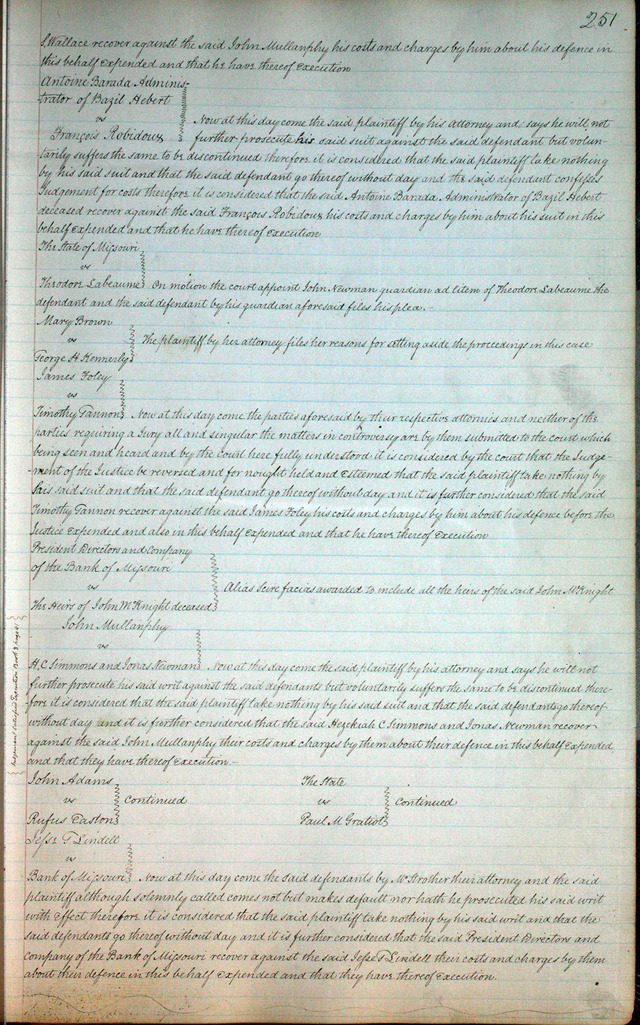 251
S, Wallace recover against the said John Mullanphy his costs and charges by him about his defence in
this behalf expended and that he have thereof Execution
Antoine Barada Adminis-
trator of Bazil Hebert
vs
François Robidoux
Now at this day come the said plaintiff by his Attorney and says he will not
further prosecute his said suit against the said defendant but volun-
tarily suffers the same to be discontinued therefore it is considered that the said plaintiff take nothing
by his said suit and that the said defendant go thereof without day and the said defendant confesses
Judgement for costs therefore it is considered that the said Antoine Barada Administrator of Bazil Hebert
deceased recover against the said François Robidoux his costs and charges by him about his suit in this
behalf Expended and that he have thereof Execution
The State of Missouri
vs
Theodore Labeaume On motion the court appoint John Newman guardian ad litem of Theodore Labeaume the
defendant and the said defendant by his guardian aforesaid files his plea. -
Mary Brown
vs
The plaintiff by her attorney files her reasons for setting aside the proceedings in this case
George H Kennerly
James Foley
vs
Timothy Tannon Now at this day come the parties aforesaid by their respective attornies and neither of the
parties requiring a Jury all and singular the matters in controversy are by them submitted to the court which
being seen and heard and by the court here fully understood it is considered by the court that the Judge-
-ment of the Justice be reversed and for nought held and Esteemed that the said plaintiff take nothing by
his said suit and that the said defendant go thereof without day and it is further considered that the said
Timothy Tannon recover against the said James Foley his costs and charges by him about his defence before the
Justice Expended and also in this behalf Expended and that he have thereof Execution
President Directors and company
of the Bank of Missouri
vs
Alias Scire facias awarded to include all the heirs of the said John McKnight
The Heirs of John McKnight deceased
John Mullanphy
vs
H. C Simmons and Jonas Newman Now at this day come the said plaintiff by his attorney and says he will not
further prosecute his said writ against the said defendants but voluntarily suffers the same to be discontinued there-
fore it is considered that the said plaintiff take nothing by his said suit and that the said defendants go thereof
without day and it is further considered that the said Hezekiah C Simmons and Jonas Newman recover
against the said John Mullanphy their costs and charges by them about their defence in this behalf Expended
and that they have thereof Execution -
John Adams
vs
Continued
Rufus Easton
The State
vs
Continued
Paul M Gratiot
Jesse T Lindell
vs
Bank of Missouri Now at this day come the said defendants by McStrother their attorney and the said
plaintiff although solemnly called comes not but makes default nor hath he prosecuted his said writ
with Effect therefore it is considered that the said plaintiff take nothing by his said writ and that the
said defendants go thereof without day and it is further considered that the said President Directors and
company of the Bank of Missouri recover against the said Jesse T Lindell their costs and charges by them
about their defence in this behalf Expended and that they have thereof Execution.